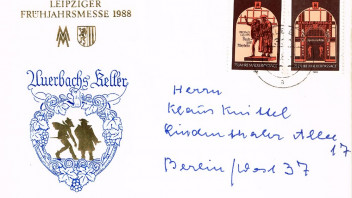 LEIPZIGER
FRÜHJAHRSMESSE 1988
Auerbachs Keller
Herrn
Klaus Knittel
Lindenthaler Allee
17
Berlin/West 37